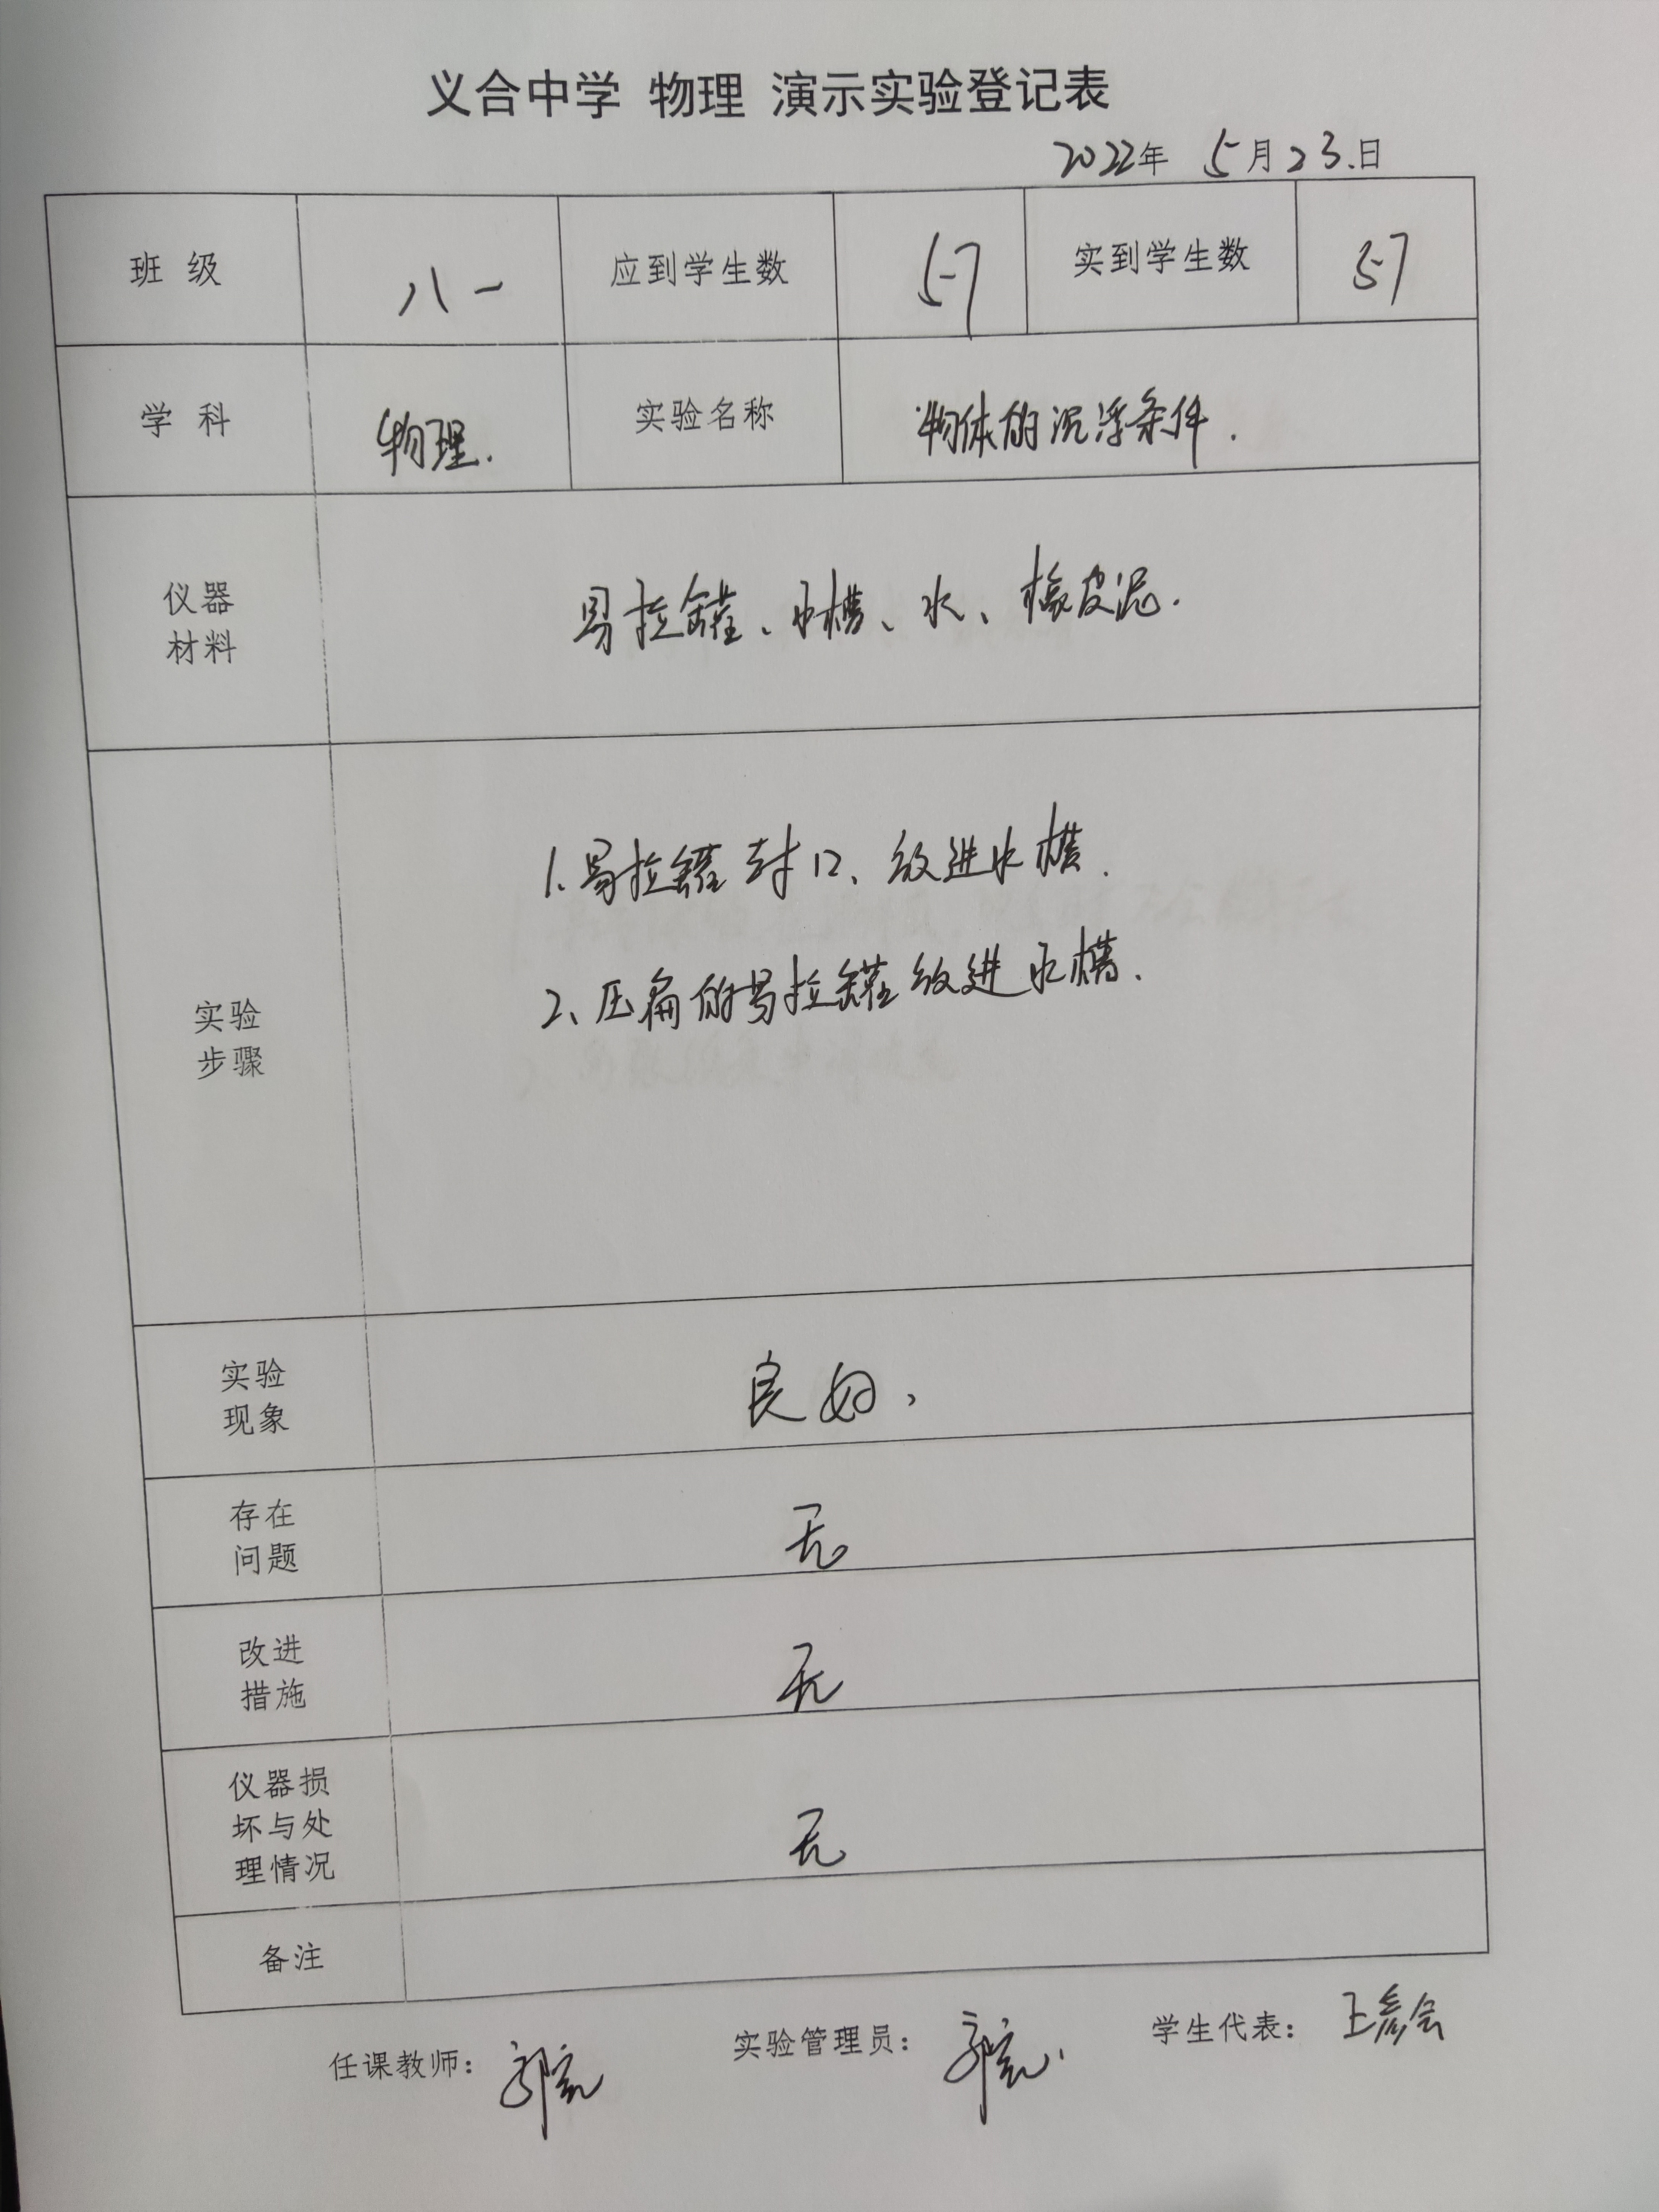 义合中学 物理 演示实验登记表
2022年 5月23.日
班 级 八一 应到学生数 57 实到学生数 57
学 科 物理. 实验名称 物体的沉浮条件.
仪器
材料
易拉罐、水槽、水、橡皮泥.
实验
步骤
1.易拉罐封口、放进水槽.
2、压扁的易拉罐放进水槽.
实验
现象
良好、
存在
问题
无
改进
措施
无
仪器损
坏与处
理情况
无
备注
任课教师：
实验管理员：
学生代表：